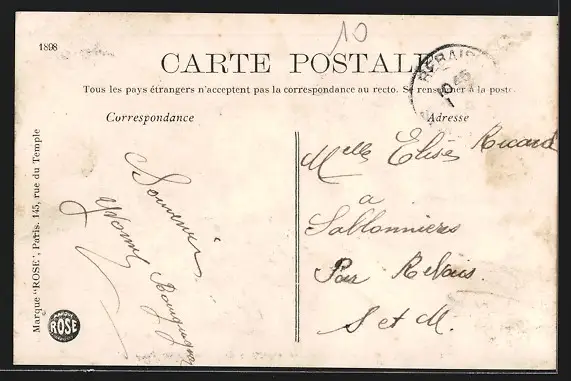 1898
10
CARTE POSTALE
REBAIS
Tous les pays étrangers n'acceptent pas la correspondance au recto. Se renseigner à la poste.
Correspondance
Adresse
Souvenir
Marque "ROSE", Paris. 145, rue du Temple
ROSE
Melle Elise Ricard
a
Sablonnieres
Par Rebais.
S et M.